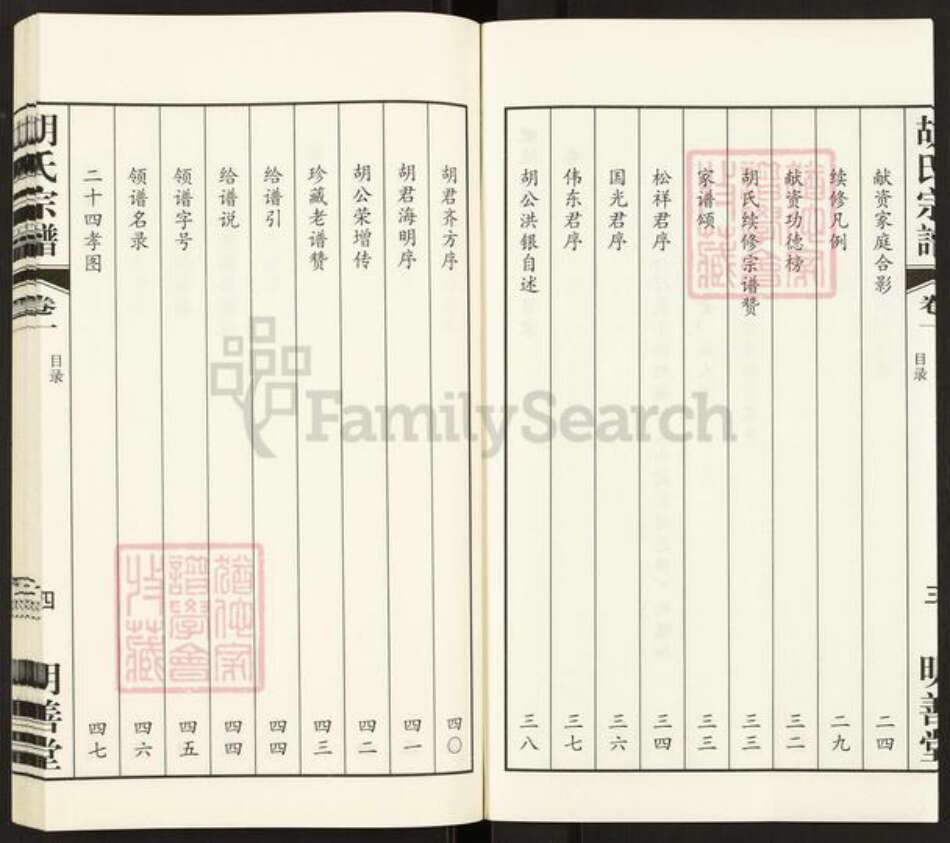 胡氏宗谱
卷一
目录
三
明善堂
献资家庭合影 二四
续修凡例 二九
献资功德榜 三二
胡氏续修宗谱赞 三三
家谱颂 三三
松祥君序 三四
国光君序 三六
伟东君序 三七
胡公洪银自述 三八
胡君齐方序 四〇
胡君海明序 四一
胡公荣增传 四二
珍藏老谱赞 四三
给谱引 四四
给谱说 四四
领谱字号 四五
领谱名录 四六
二十四孝图 四七
胡氏宗谱
卷一
目录
四
明善堂
FamilySearch